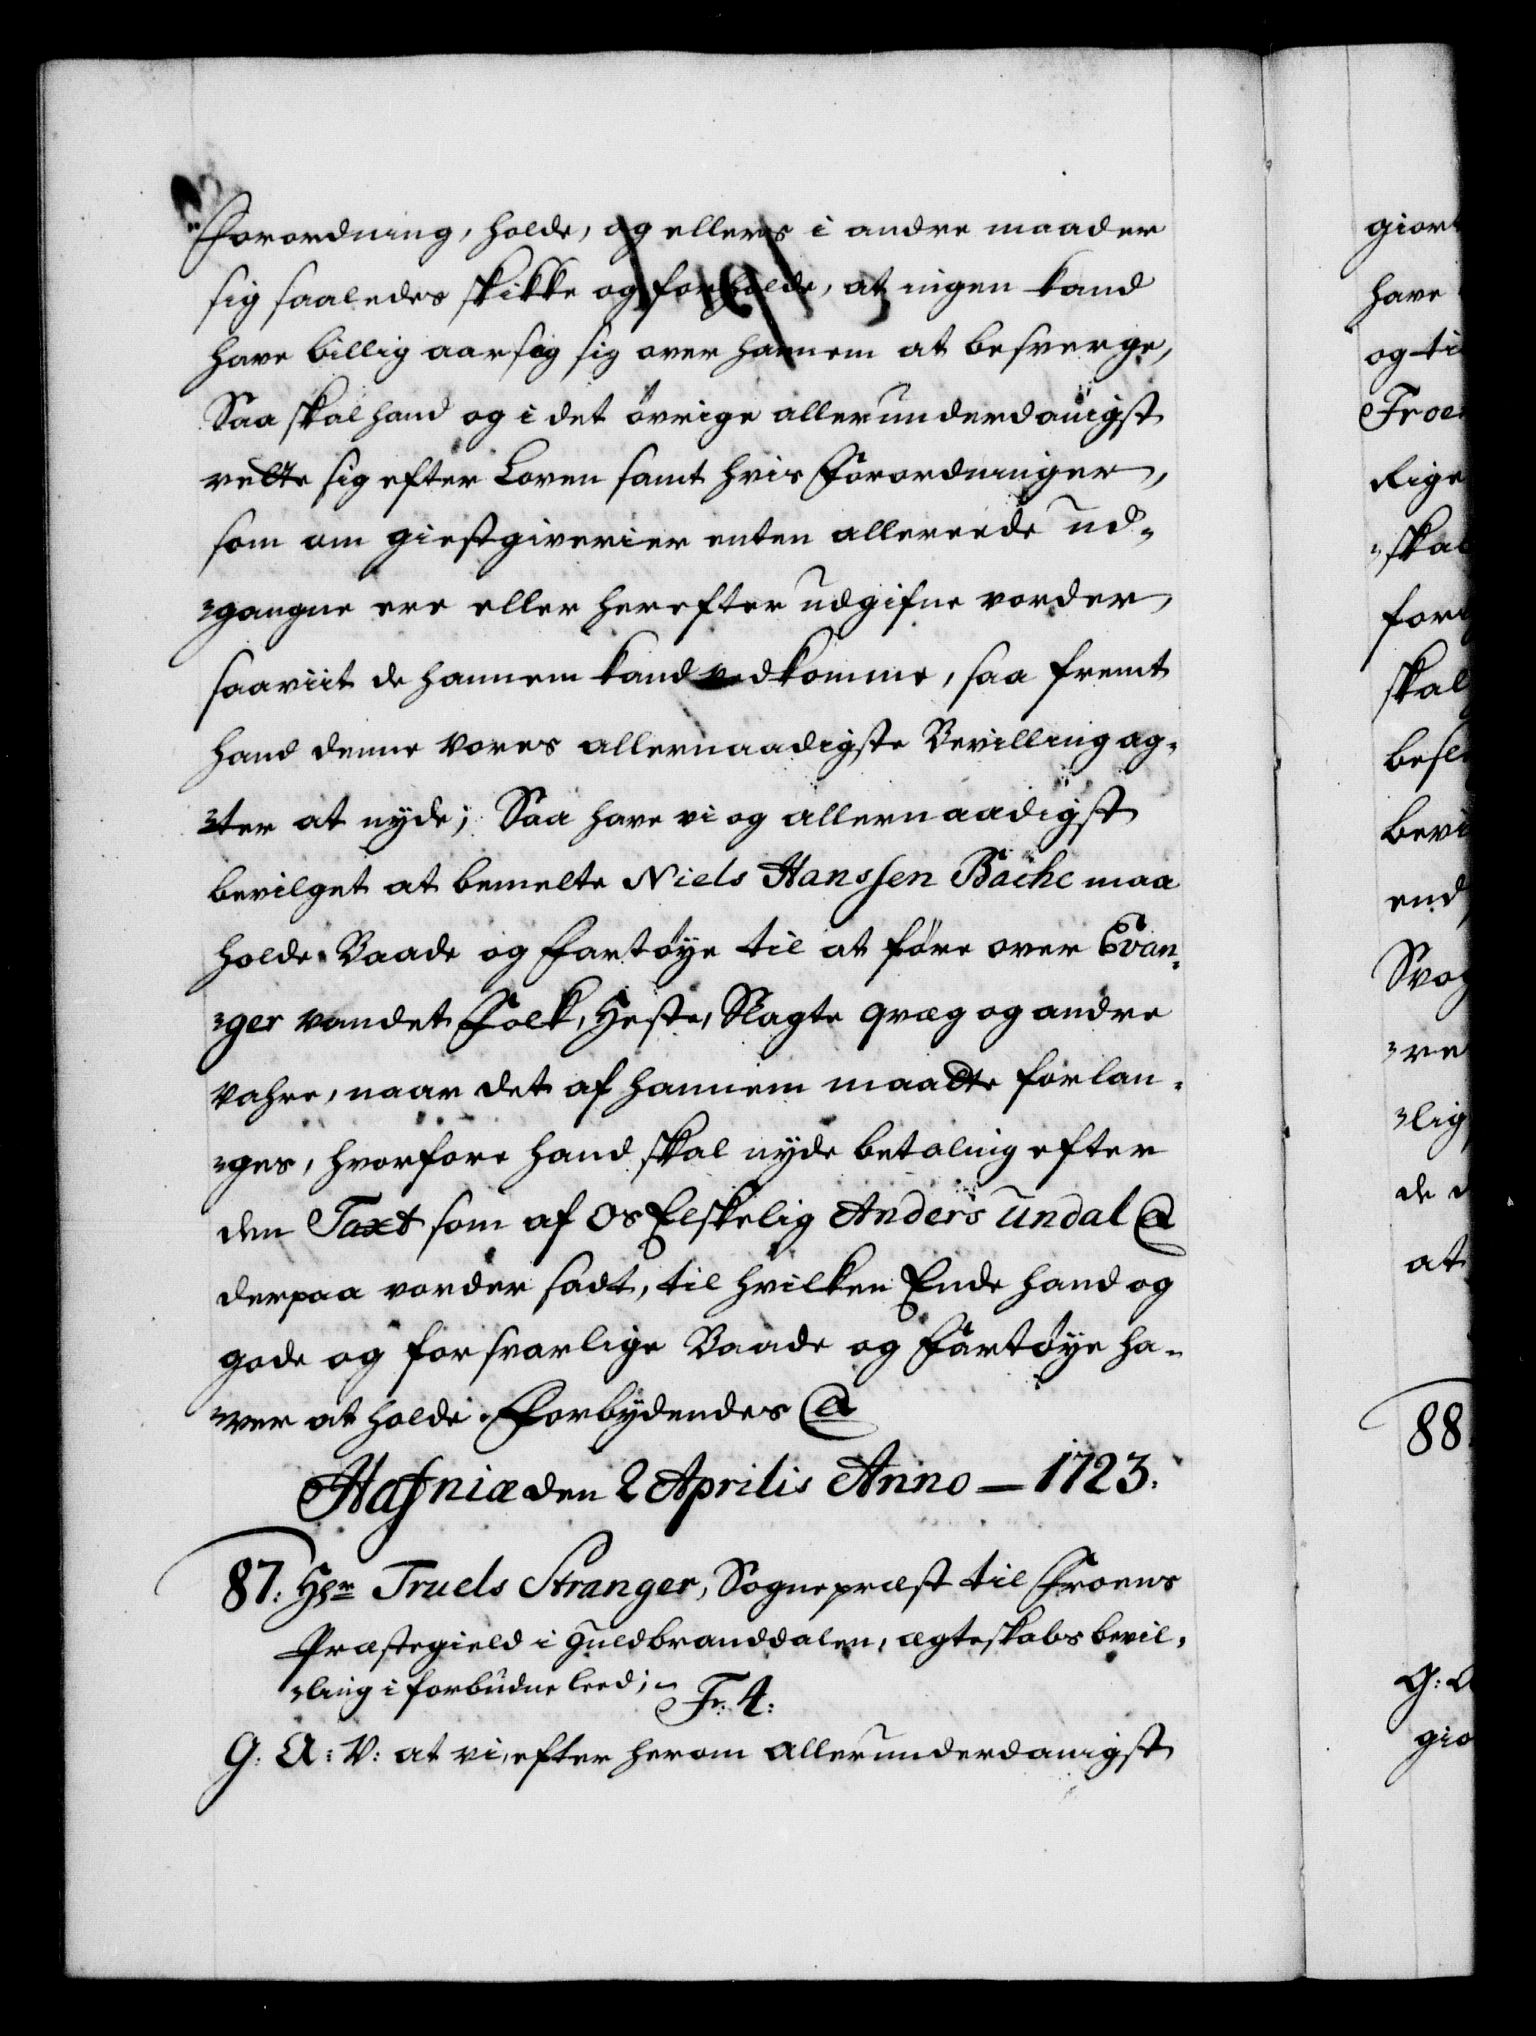 Forordning, holde, og ellers i andre maader
sig saaledes skikke og forholde, at ingen kand
have billig aarsag sig over hannem at besverge,
Saa skal hand og i det övrige allerunderdanigst
rette sig efter Loven samt hvis Forordninger,
som om giestgiverier enten allereede ud-
-gangne ere eller herefter udgifne vorder,
saaviit de hannem kand vedkomme, saa fremt
hand denne vores allernaadigste Bevilling ag-
-ter at nyde; Saa have vi og allernaadigst
bevilget at bemelte Niels Hanssen Bache maa
holde Baade og Fartöye til at före over Evan-
-ger vandet Folk, Heste, Slagte qvæg og andre
vahre, naar det af hannem maatte forlan-
-ges, hvorfore hand skal nyde betaling efter
den Taxt som af Os Elskelig Anders Undal @
derpaa vorder sadt, til hvilken Ende hand og
gode og forsvarlige Baade og Fartöye ha-
-ver at holde. Forbydendes @
Hafniæ den 2 Aprilis Anno — 1723.
87. Hr Truels Stranger, Sognepræst til Froens
Præstegield i Guldbranddalen, ægteskabs bevil-
-ling i forbudne leed; Fr. 4:
G: A: V: at vi, efter herom allerunderdanigst
giort
have
og ti
Froe
Rige
-ska
for
skal
bevi
end
-re
-lig
de
at
88
G: A
gio